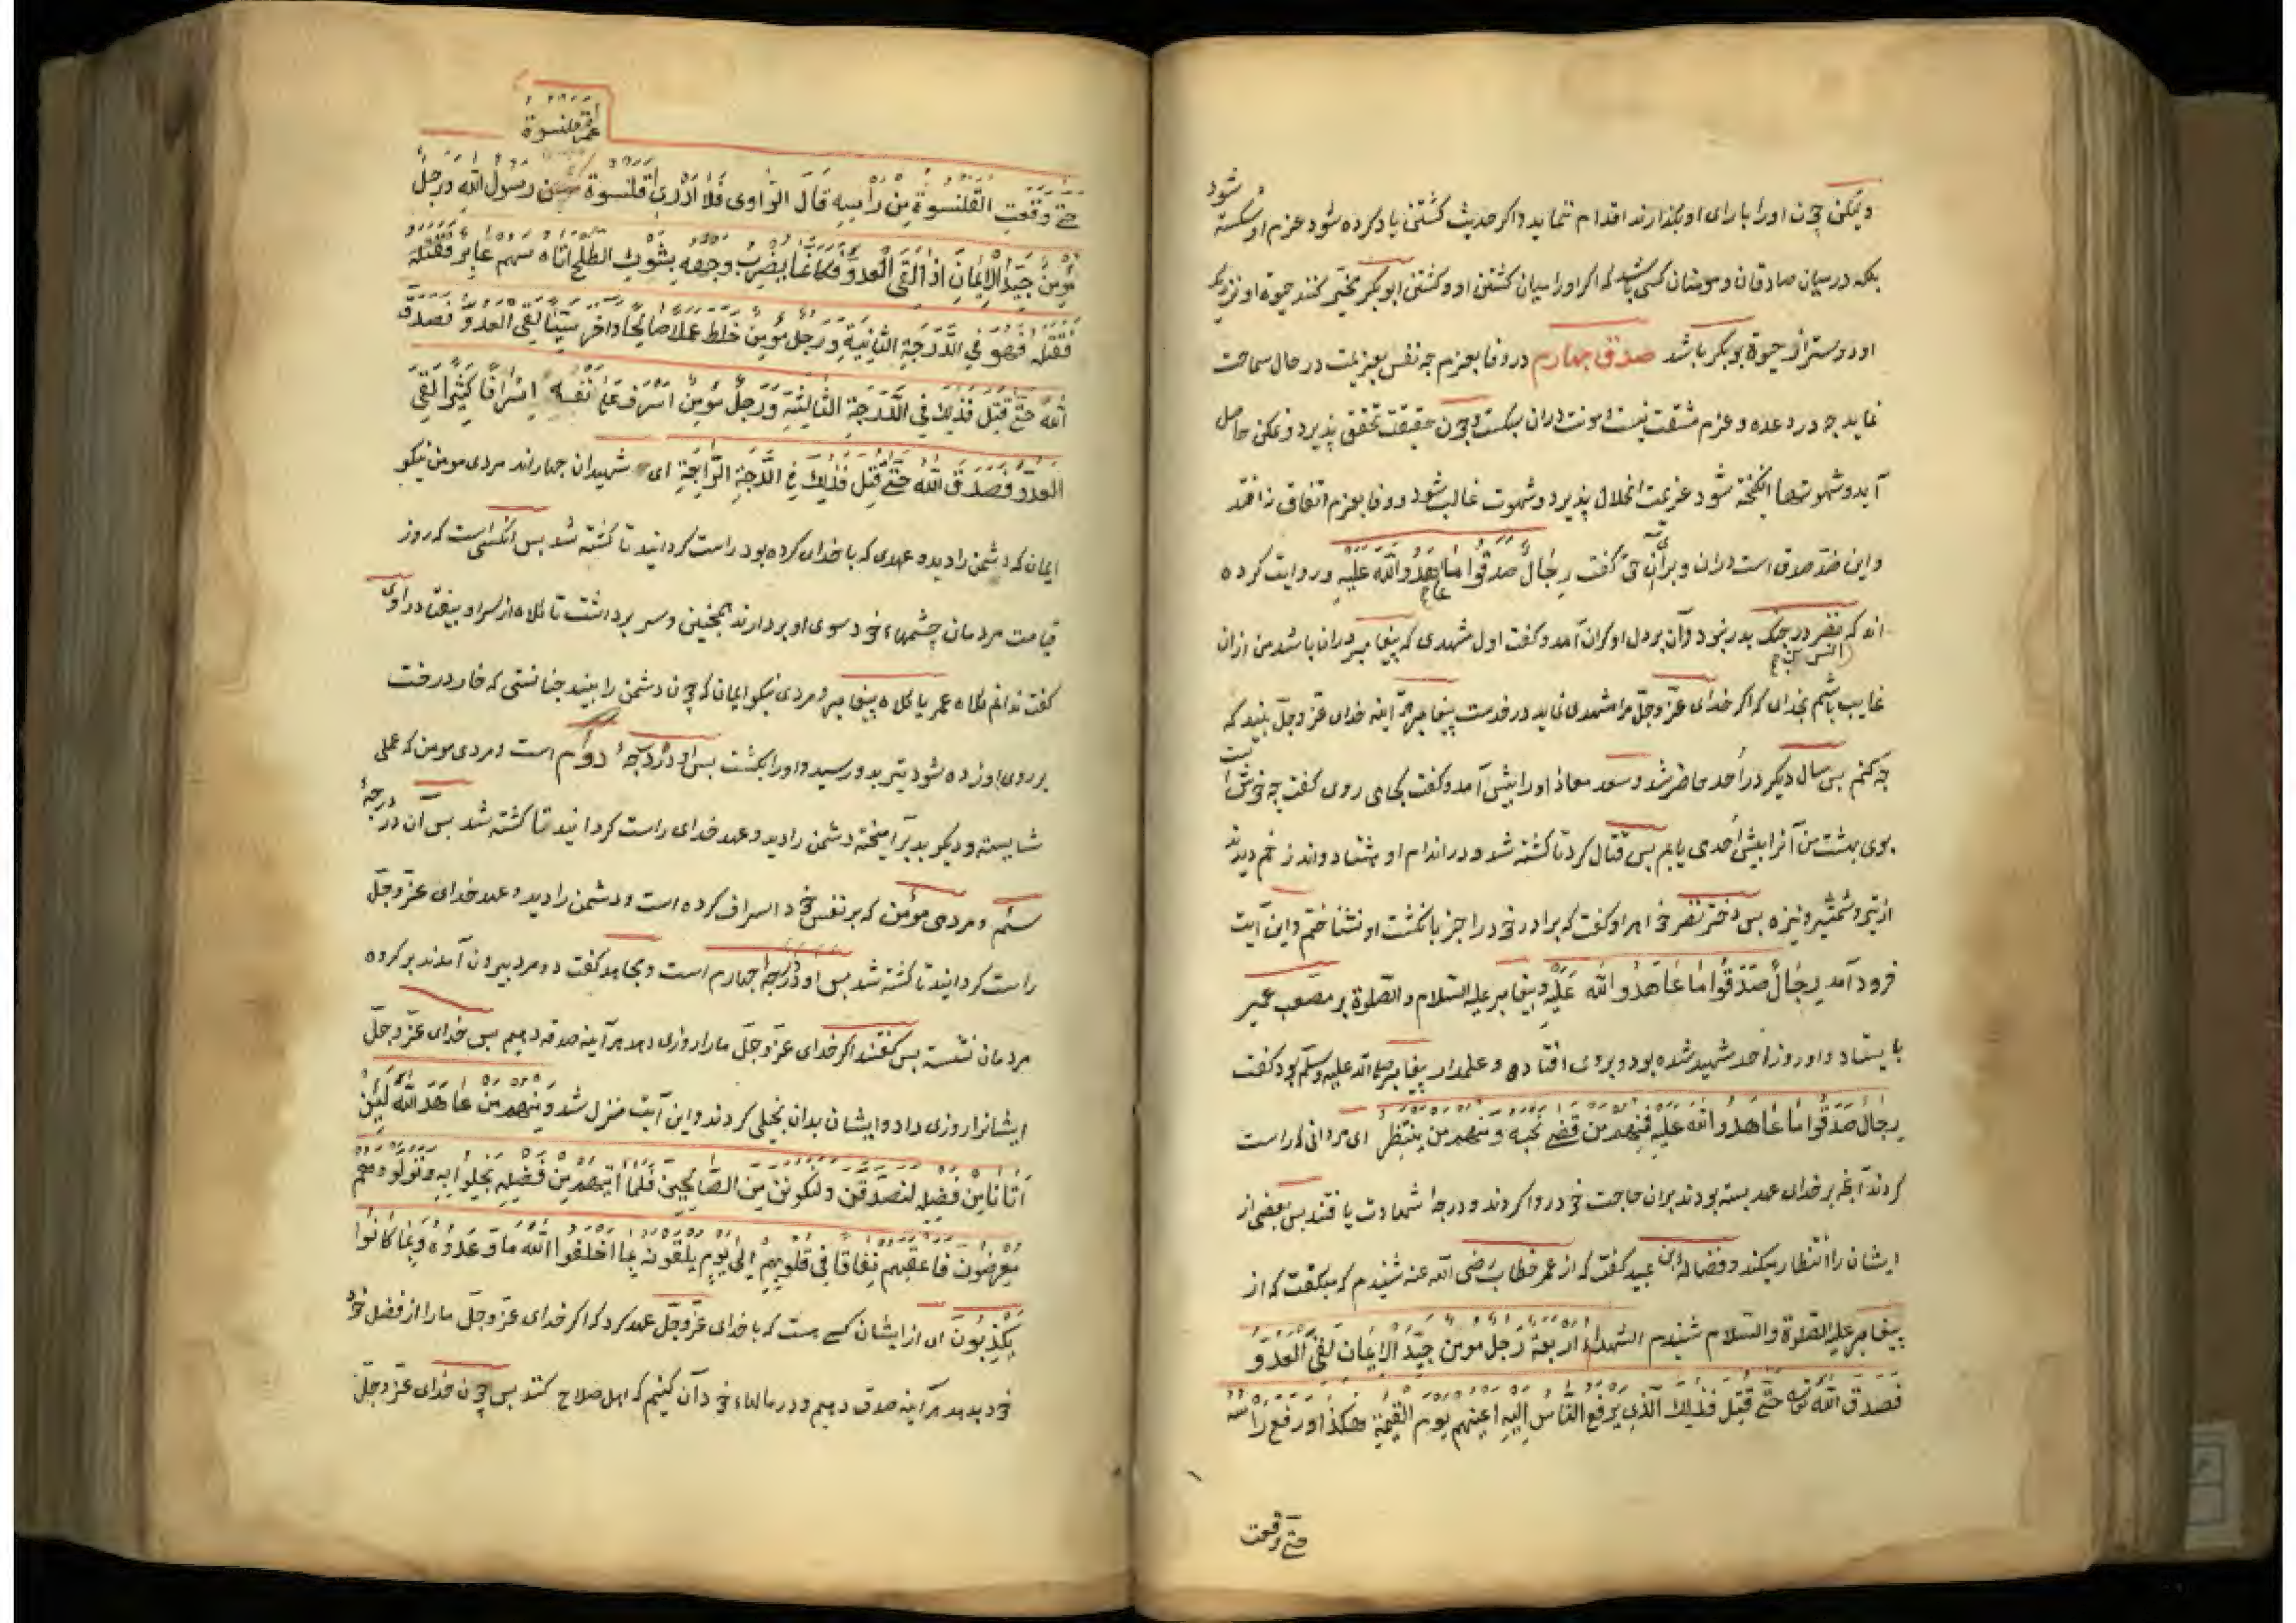 شود
و لیکن چون او را با رای او بگذارند اقدام ننماید و اگر حدیث کشتن یاد کرده شود عزم او شکسته
بلکه در میان صادقان و مومنان کسی باشد که اگر او را میان کشتن او و کشتن ابوبکر مخیر کنند حیوة او نزدیک
او دوستر از حیوة بوبکر باشد صدق چهارم در وفا بعزم چه نفس بعزیمت در حال سماحت
نماید چه در وعده و عزم مشقت نیست و مونت دران سبکست و چون حقیقت تحقق پذیرد و تمکن حاصل
آید و شهوتها انگیخته شود عزیمت انحلال پذیرد و شهوت غالب شود و وفا بعزم اتفاق نه افتد
و این ضد صدق است دران و برای آن حق گفت رِجَالٌ صَدَقُوا مَا عَاهَدُوا اللهَ عَلَیْهِ و روایت کرده
اند که نضر در جنک بدر نبود و آن بر دل او کران آمد و گفت اول مشهدی که پیغامبر دران باشد من ازان
غایب باشم بخدای که اگر خدای عزّ و جلّ مرا مشهدی نماید در خدمت پیغامبر هر آینه خدای عزّ و جلّ بیند که
چه کنم بس سال دیگر در اُحد حاضر شد و سعد معاذ او را پیش آمد و گفت کجا می روی گفت چه خوش است
بوی بهشت من آنرا پیش اُحد می یابم بس قتال کرد تا کشته شد و در اندام او هشتاد و اند زخم دیدند
از تیر و شمشیر و نیزه بس دختر نضر خواهر او گفت که برادر خود را جز بانکشت او نشناختم و این آیت
فرود آمد رِجَالٌ صَدَقُوا مَا عَاهَدُوا اللهَ عَلَیْهِ و پیغامبر علیه السلام و الصلوة بر مصعب عمیر
بایستاد و او روز احد شهید شده بود و بروی افتاده و علمدار پیغامبر صلی الله علیه وسلم بود گفت
رِجَالٌ صَدَقُوا مَا عَاهَدُوا اللهَ عَلَیْهِ فَمِنْهُمْ مَنْ قَضَی نَحْبَهُ وَمِنْهُمْ مَنْ یَنْتَظِرُ ای مردانی که راست
کردند آنچه بر خدای عهد بسته بودند بران حاجت خود روا کردند و درجهٔ شهادت یافتند بس بعضی از
ایشان را انتظار میکند و فضالة ابن عبید گفت که از عمر خطاب رضی الله عنه شنیدم که میگفت که از
پیغامبر علیه الصلوة و السلام شنیدم الشهداء اربعة رجل مومن جیّد الایمان لقی العدوّ
فصدق الله حتّی قتل فذلک الّذی یرفع الناس الیه اعینهم یوم القیمة هکذا و رفع راسه
حتی وقعت
عمر قلنسوة
حتی وقعت القلنسوة من راسه قال الراوی فلا ادری اقلنسوة رسول الله و رجل
مؤمن جیّد الایمان اذا لقی العدوّ فکانما یضرب وجهه بشوک الطلح اتاه سهم عایر فقتله
فقتله فهو فی الدّرجة الثّانیة و رجل مؤمن خلط عملا صالحا و آخر سیّئا لقی العدوّ فصدق
الله حتّی قتل فذلک فی الدّرجة الثّالثة و رجل مؤمن اسرف علی نفسه اسرافا کثیرا لقی
العدوّ فصدق الله حتّی قتل فذلک فی الدّرجة الرّابعة ای شهیدان چهارند مردی مومن نیکو
ایمان که دشمن را دید و عهدی که با خدای کرده بود راست کردانید تا کشته شد بس آنکسی است که روز
قیامت مردمان چشمهاء خود سوی او بردارند همچنین و سر برداشت تا کلاه از سر او بیفتاد راوی
گفت ندانم کلاه عمر یا کلاه پیغامبر و مردی نیکو ایمان که چون دشمن را بیند چنانستی که خار درخت
بر روی او زده شود تیر بدو رسید و او را بکشت بس او در درجهٔ دوم است و مردی مومن که عملی
شایسته و دیگر بد برآمیخته دشمن را دید و عهد خدای راست کردانید تا کشته شد بس آن در درجهٔ
سیّم و مردی مؤمن که بر نفس خود اسراف کرده است و دشمن را دید و عهد خدای عزّ و جلّ
راست کردانید تا کشته شد بس او در درجهٔ چهارم است و مجاهد گفت دو مرد بیرون آمدند بر کروه
مردمان نشسته بس گفتند اگر خدای عزّ و جلّ ما را روزی دهد هر آینه صدقه دهیم بس خدای عزّ و جلّ
ایشانرا روزی داد و ایشان بدان بخیلی کردند و این آیت منزل شد وَمِنْهُمْ مَنْ عَاهَدَ اللهَ لَئِنْ
آتَانَا مِنْ فَضْلِهِ لَنَصَّدَّقَنَّ وَلَنَکُونَنَّ مِنَ الصَّالِحِینَ فَلَمَّا آتَیهُمْ مِنْ فَضْلِهِ بَخِلُوا بِهِ وَتَوَلَّوْا وَهُمْ
مُعْرِضُونَ فَاَعْقَبَهُمْ نِفَاقًا فِی قُلُوبِهِمْ اِلَی یَوْمِ یَلْقَوْنَهُ بِمَا اَخْلَفُوا اللهَ مَا وَعَدُوهُ وَبِمَا کَانُوا
یَکْذِبُونَ ای از ایشان کسی هست که با خدای عزّ و جلّ عهد کرد که اگر خدای عزّ و جلّ ما را از فضل خود
خود بدهد هر آینه صدقه دهیم و در مالهاء خود آن کنیم که اهل صلاح کنند بس چون خدای عزّ و جلّ